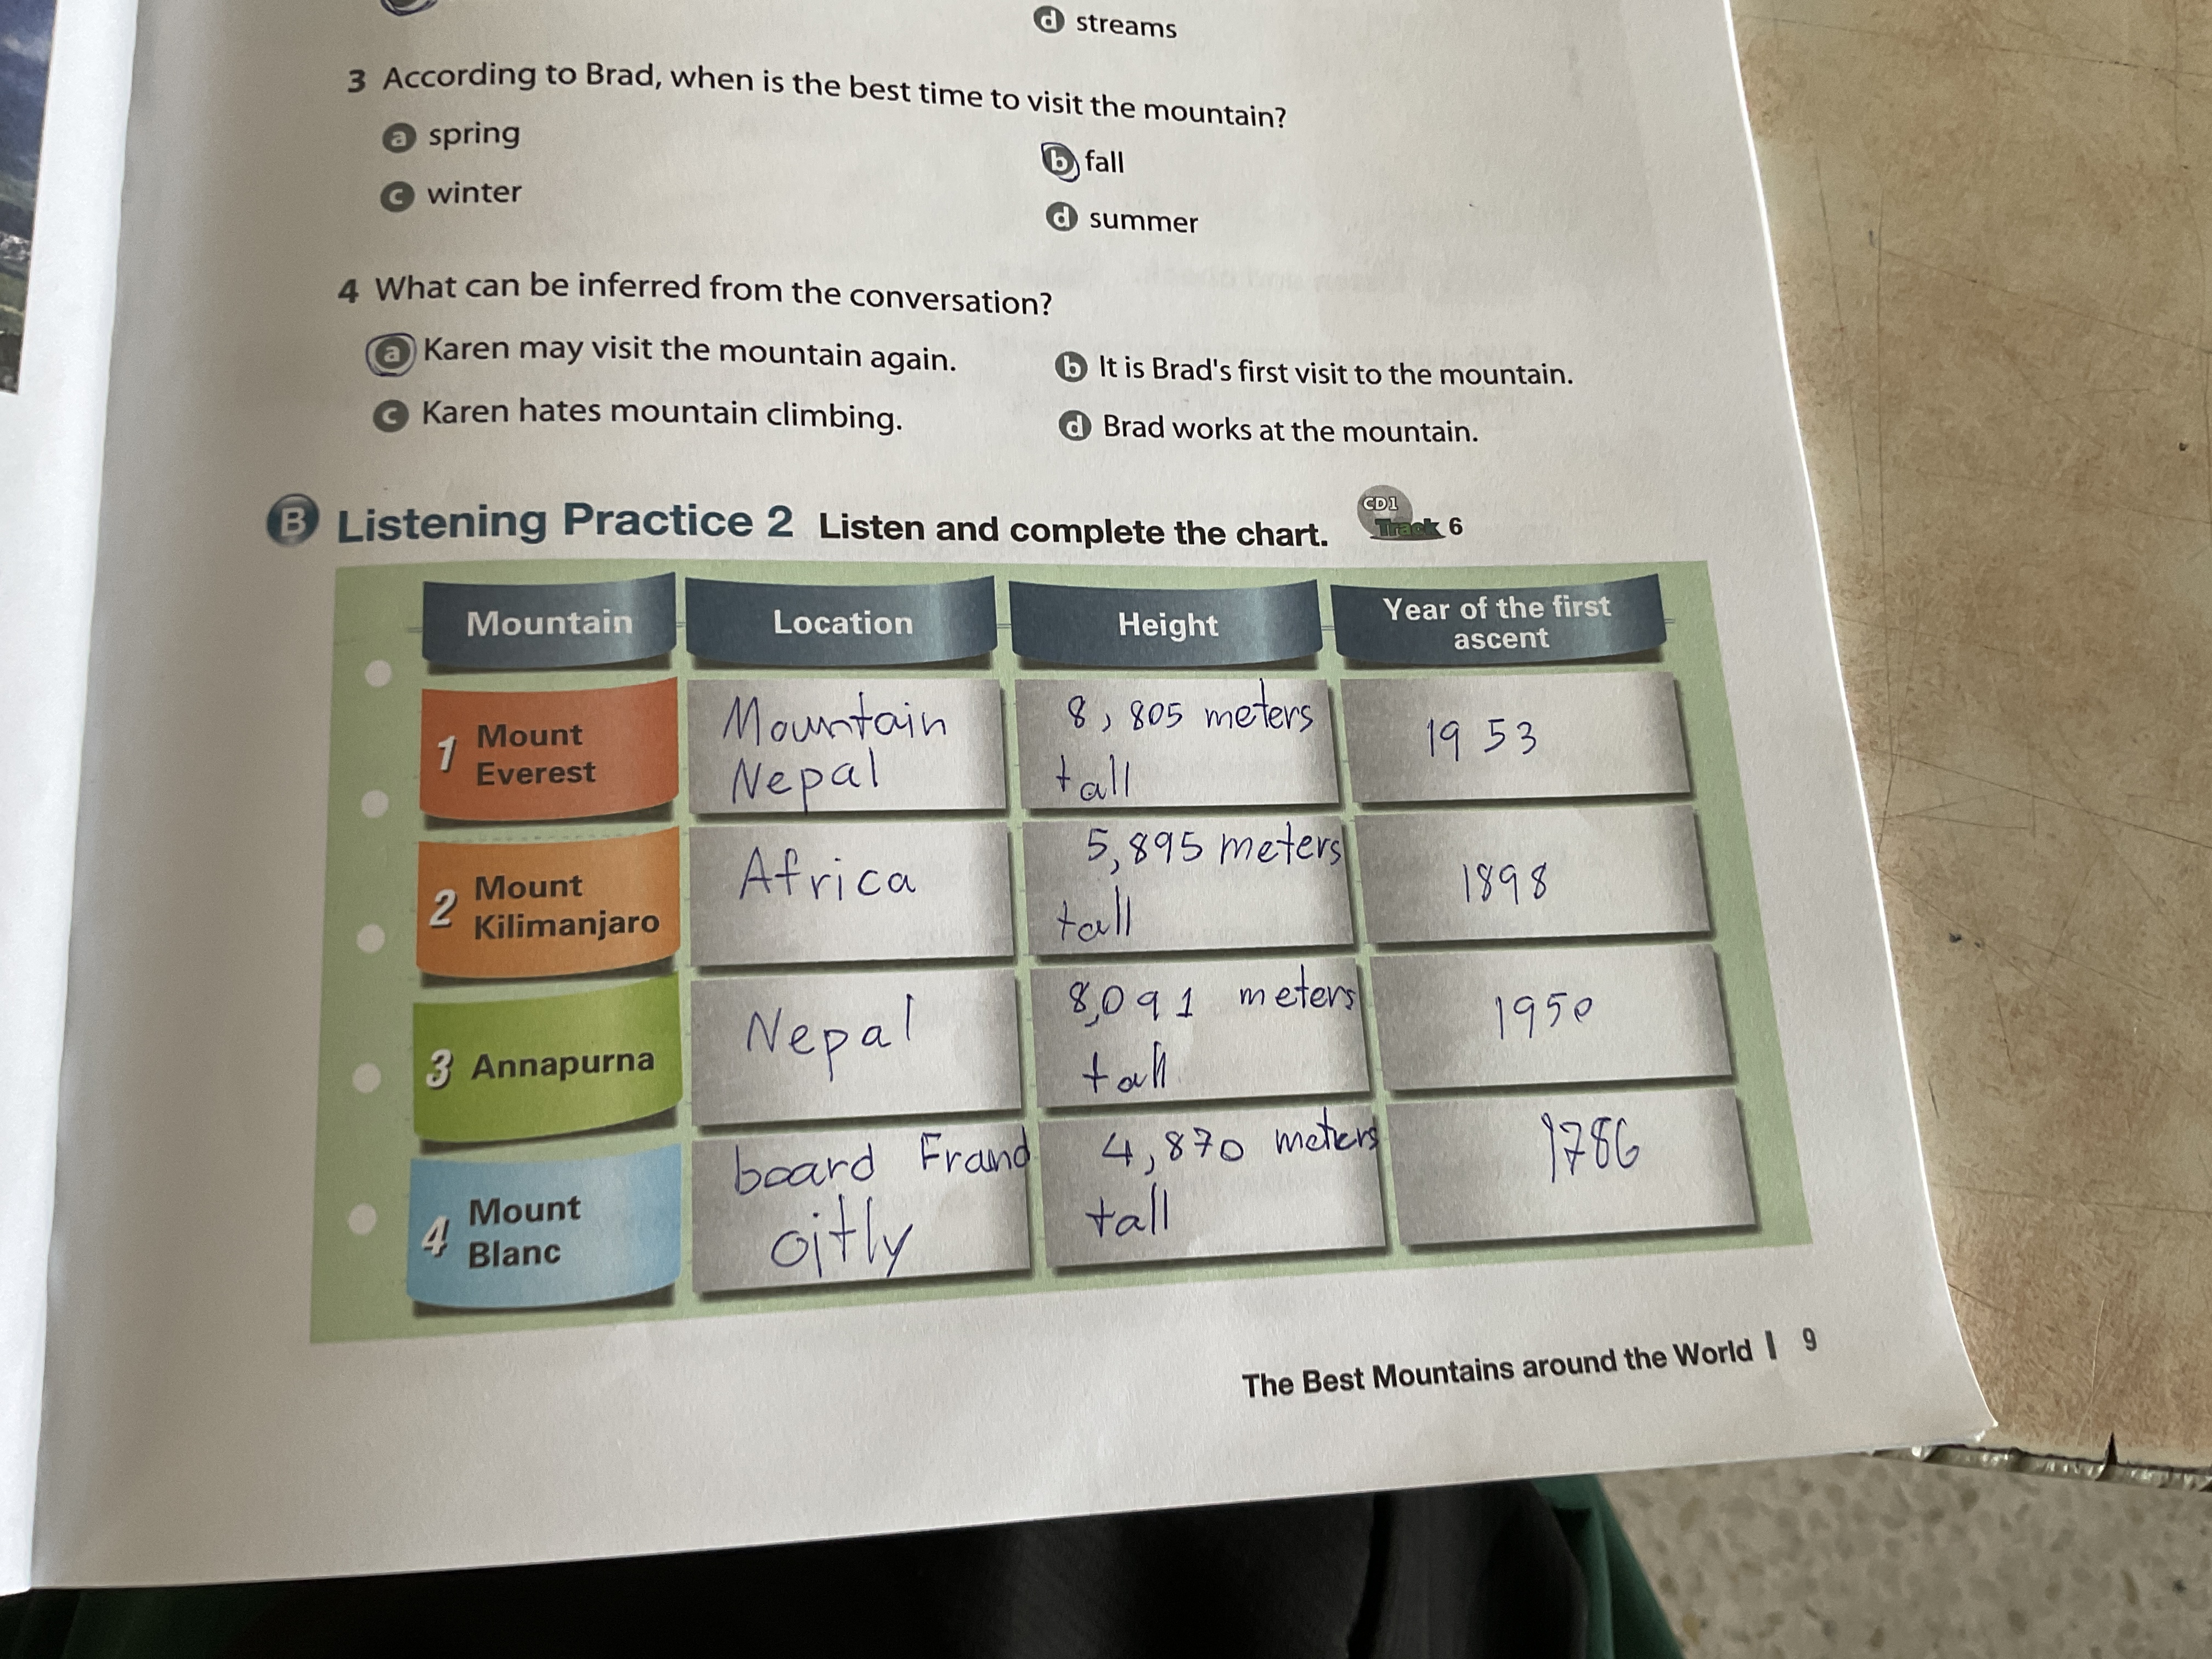 d streams
3 According to Brad, when is the best time to visit the mountain?
a spring
b fall
c winter
d summer
4 What can be inferred from the conversation?
a Karen may visit the mountain again.
b It is Brad's first visit to the mountain.
c Karen hates mountain climbing.
d Brad works at the mountain.
B Listening Practice 2 Listen and complete the chart. CD1 Track 6
Mountain Location Height Year of the first ascent
1 Mount Everest
Mountain
Nepal
8,805 meters
tall
1953
2 Mount Kilimanjaro
Africa
5,895 meters
tall
1898
3 Annapurna
Nepal
8,091 meters
tall
1950
4 Mount Blanc
board Frand
oitly
4,870 meters
tall
1786
The Best Mountains around the World | 9